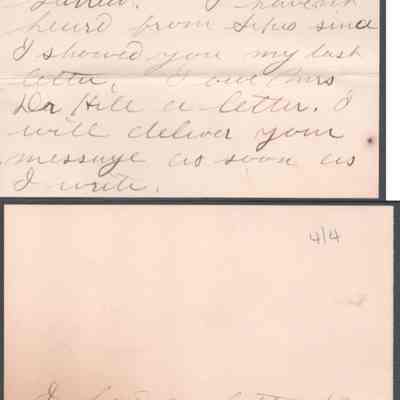 I haven't
heard from since
I showed you my last
letter, I owe Mrs
Dr Hill a letter. I
will deliver your
message as soon as
I write.
4/4